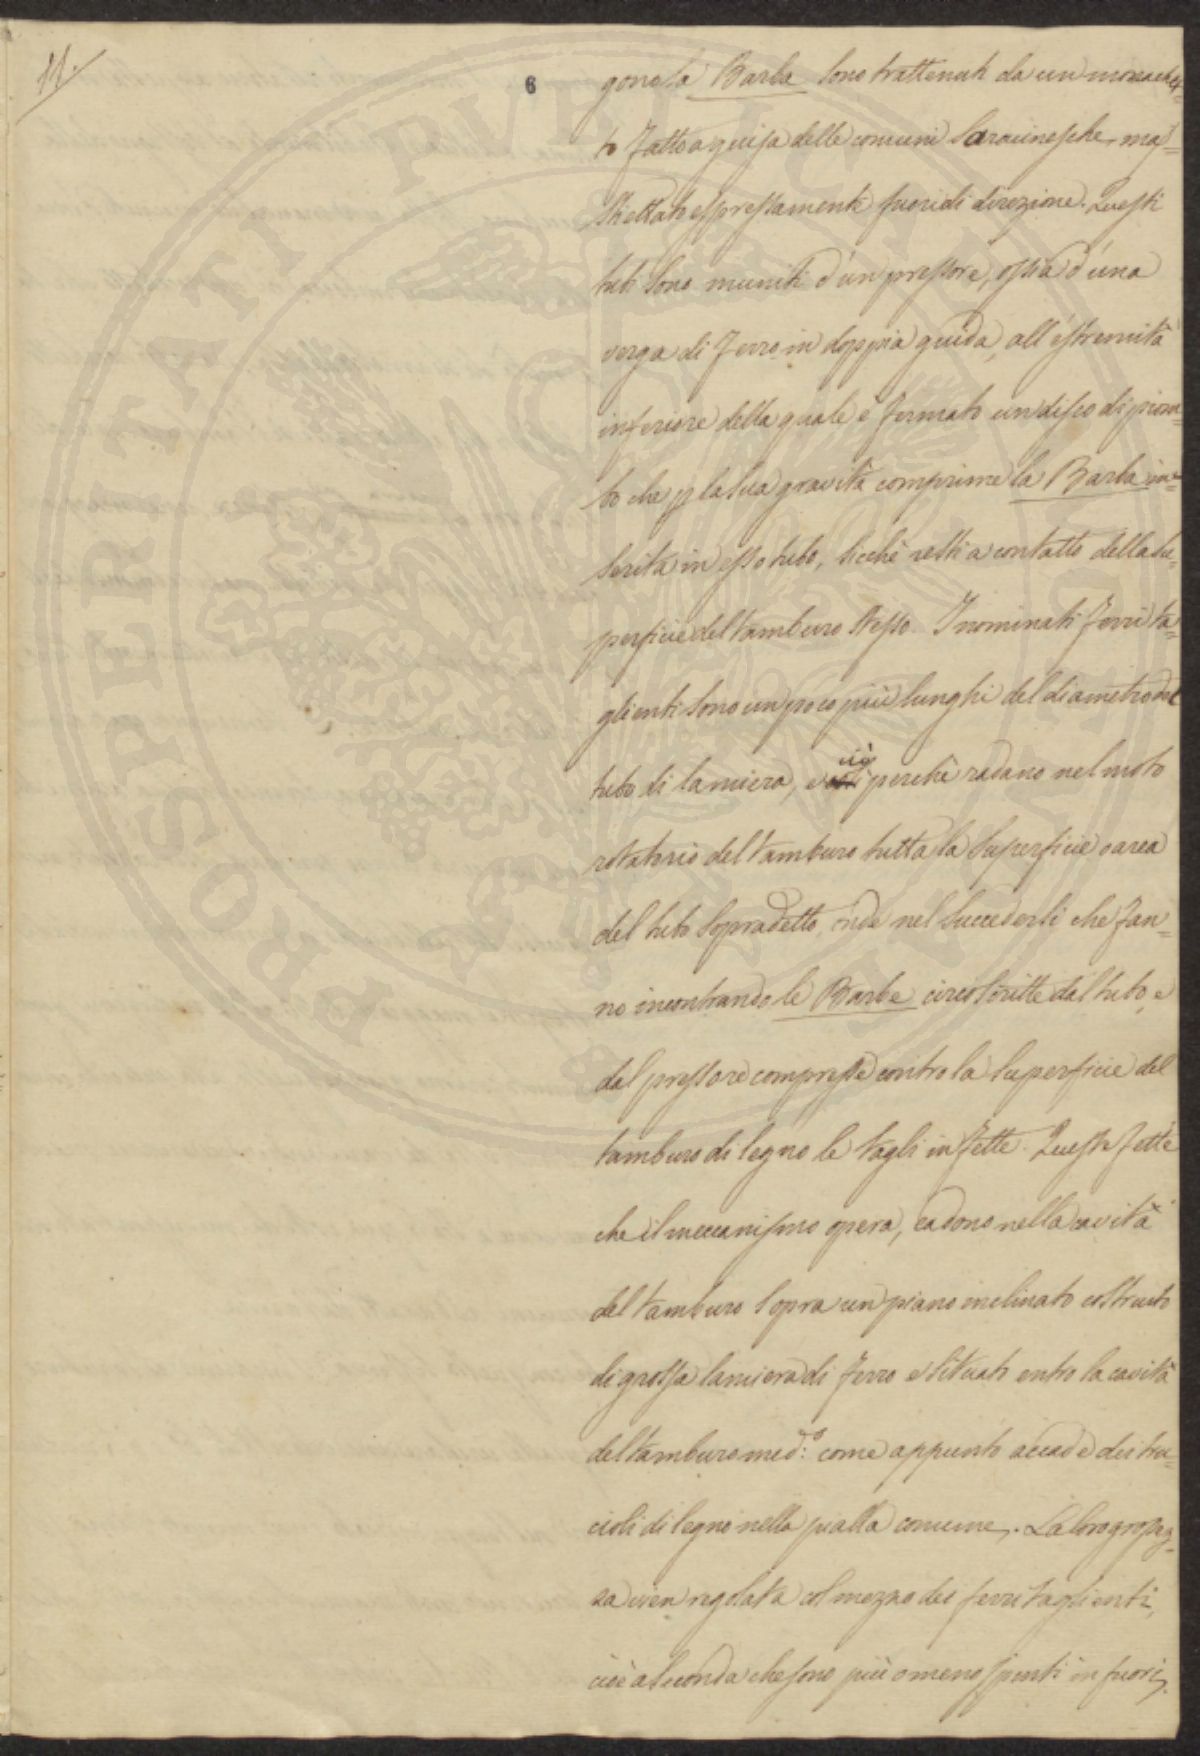 11.
6
gono la Barba sono trattenuti da un monachet=
to fatto a guisa delle comuni Saracinesche, ma=
stiettato espressamente fuori di direzione. Questi
tubi sono muniti d'un pressore, ossia d'una
verga di ferro in doppia guida, all'estremità
inferiore della quale è fermato un disco di piom=
bo che p la sua gravità comprime la Barba in=
serita in esso tubo, sicchè resti a contatto della su=
perficie del tamburo stesso. I nominati ferri ta=
glienti sono un poco più lunghi del diametro del
tubo di lamiera, e ciò perchè radano nel moto
rotatorio del tamburo tutta la superficie o area
del tubo sopradetto, onde nel succedersi che fan=
no incontrando le Barbe circoscritte dal tubo, e
dal pressore compresse contro la superficie del
tamburo di legno le tagli in fette. Queste fette
che il meccanismo opera, cadono nella cavità
del tamburo sopra un piano inclinato costruito
di grossa lamiera di ferro e situato entro la cavità
del tamburo med:o come appunto accade dei tru=
cioli di legno nella pialla comune. La loro grossez=
za vien regolata col mezzo dei ferri taglienti,
cioè a seconda che sono più o meno spinti in fuori,
PROSPERITATI PVBLICAE